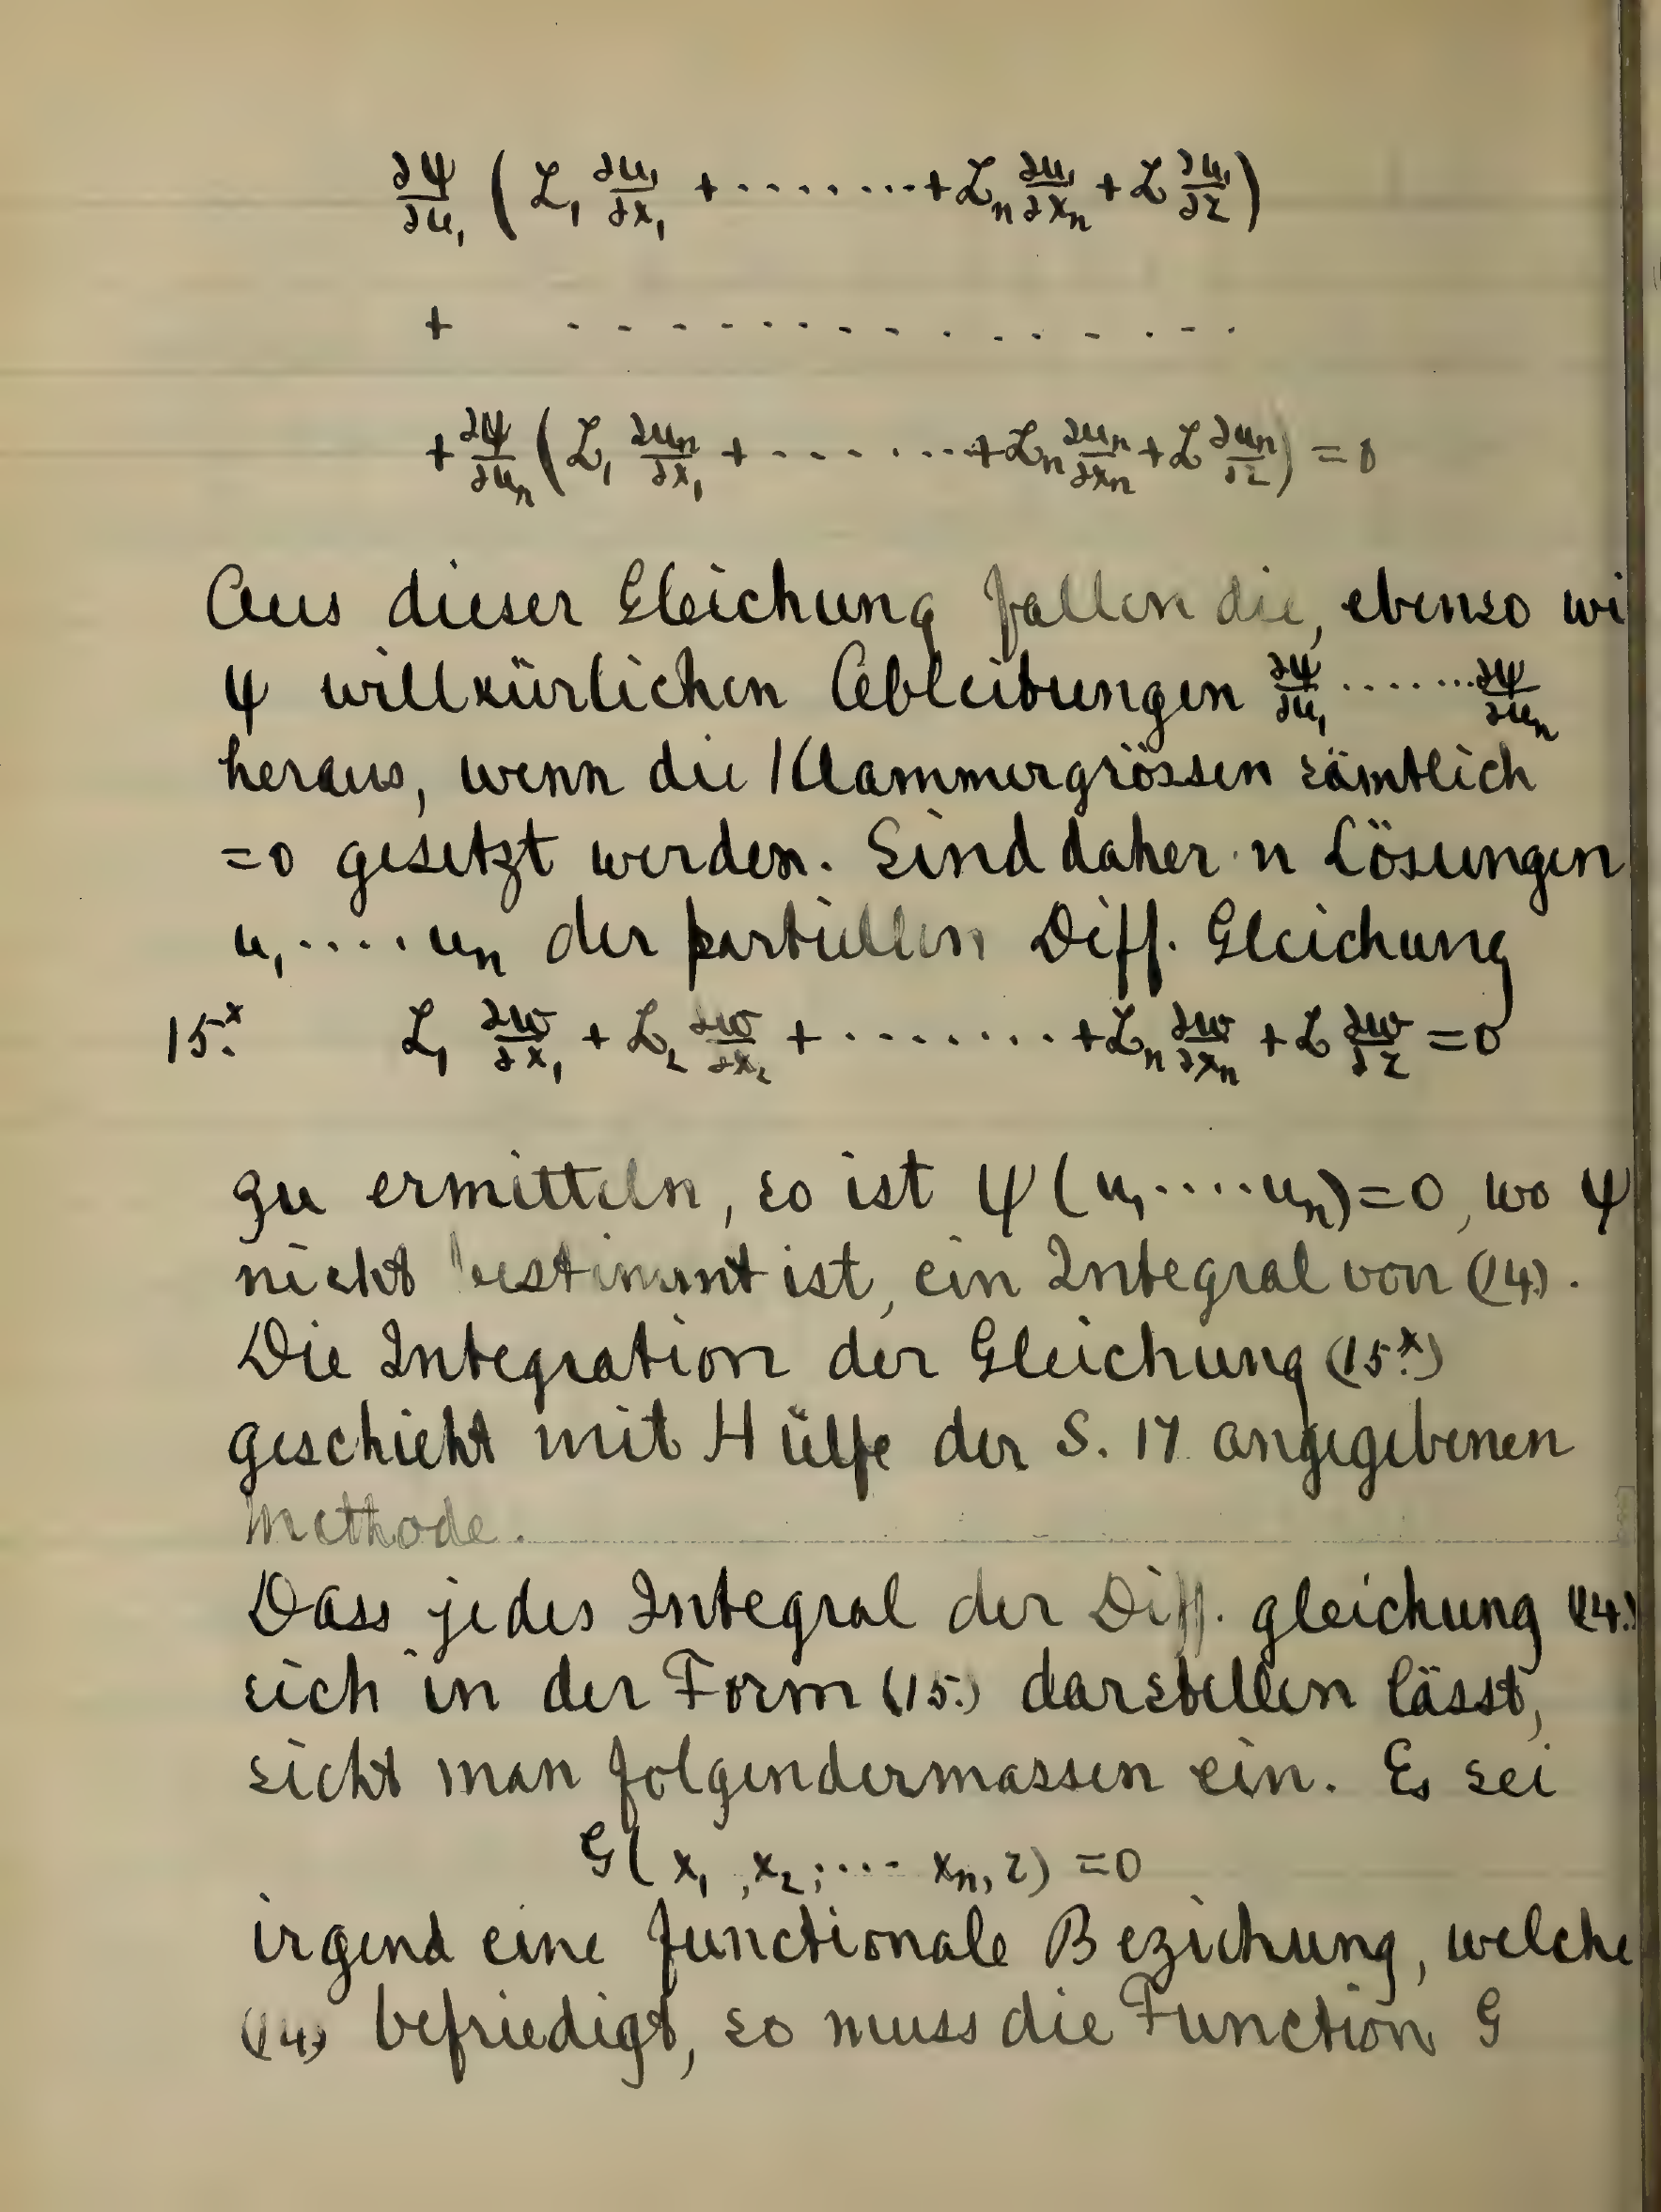 ∂ψ/∂u₁ ( L₁ ∂u₁/∂x₁ + ········ + Lₙ ∂u₁/∂xₙ + L ∂u₁/∂z )
+ ··············
+ ∂ψ/∂uₙ ( L₁ ∂uₙ/∂x₁ + ········ + Lₙ ∂uₙ/∂xₙ + L ∂uₙ/∂z ) = 0
Aus dieser Gleichung fallen die, ebenso wi
ψ willkürlichen Ableitungen ∂ψ/∂u₁ ······· ∂ψ/∂uₙ
heraus, wenn die Klammergrössen sämtlich
=0 gesetzt werden. Sind daher n Lösungen
u₁ ···· uₙ der partiellen Diff. Gleichung
15.ˣ L₁ ∂w/∂x₁ + L₂ ∂w/∂x₂ + ········ + Lₙ ∂w/∂xₙ + L ∂w/∂z = 0
zu ermitteln, so ist ψ(u₁ ···· uₙ)=0, wo ψ
nicht bestimmt ist, ein Integral von (14).
Die Integration der Gleichung (15.ˣ)
geschieht mit Hülfe der S. 17 angegebenen
Methode.
Dass jedes Integral der Diff. gleichung (14.)
sich in der Form (15.) darstellen lässt,
sieht man folgendermassen ein. Es sei
G( x₁, x₂, ···· xₙ, z) =0
irgend eine functionale Beziehung, welche
(14) befriedigt, so muss die Function G